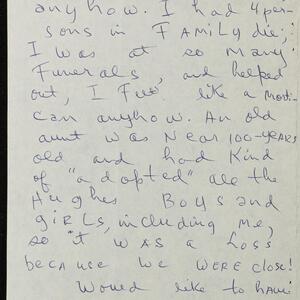 anyhow. I had 4 per-
sons in FAMILY die;
I was at so many
Funerals, and helped
out, I Felt like a morti-
can anyhow. An old
aunt was Near 100-years
old and had Kind
of "adopted" all the
Hughes Boys and
girls, including me,
so it was a Loss
because we were close!
Would like to have